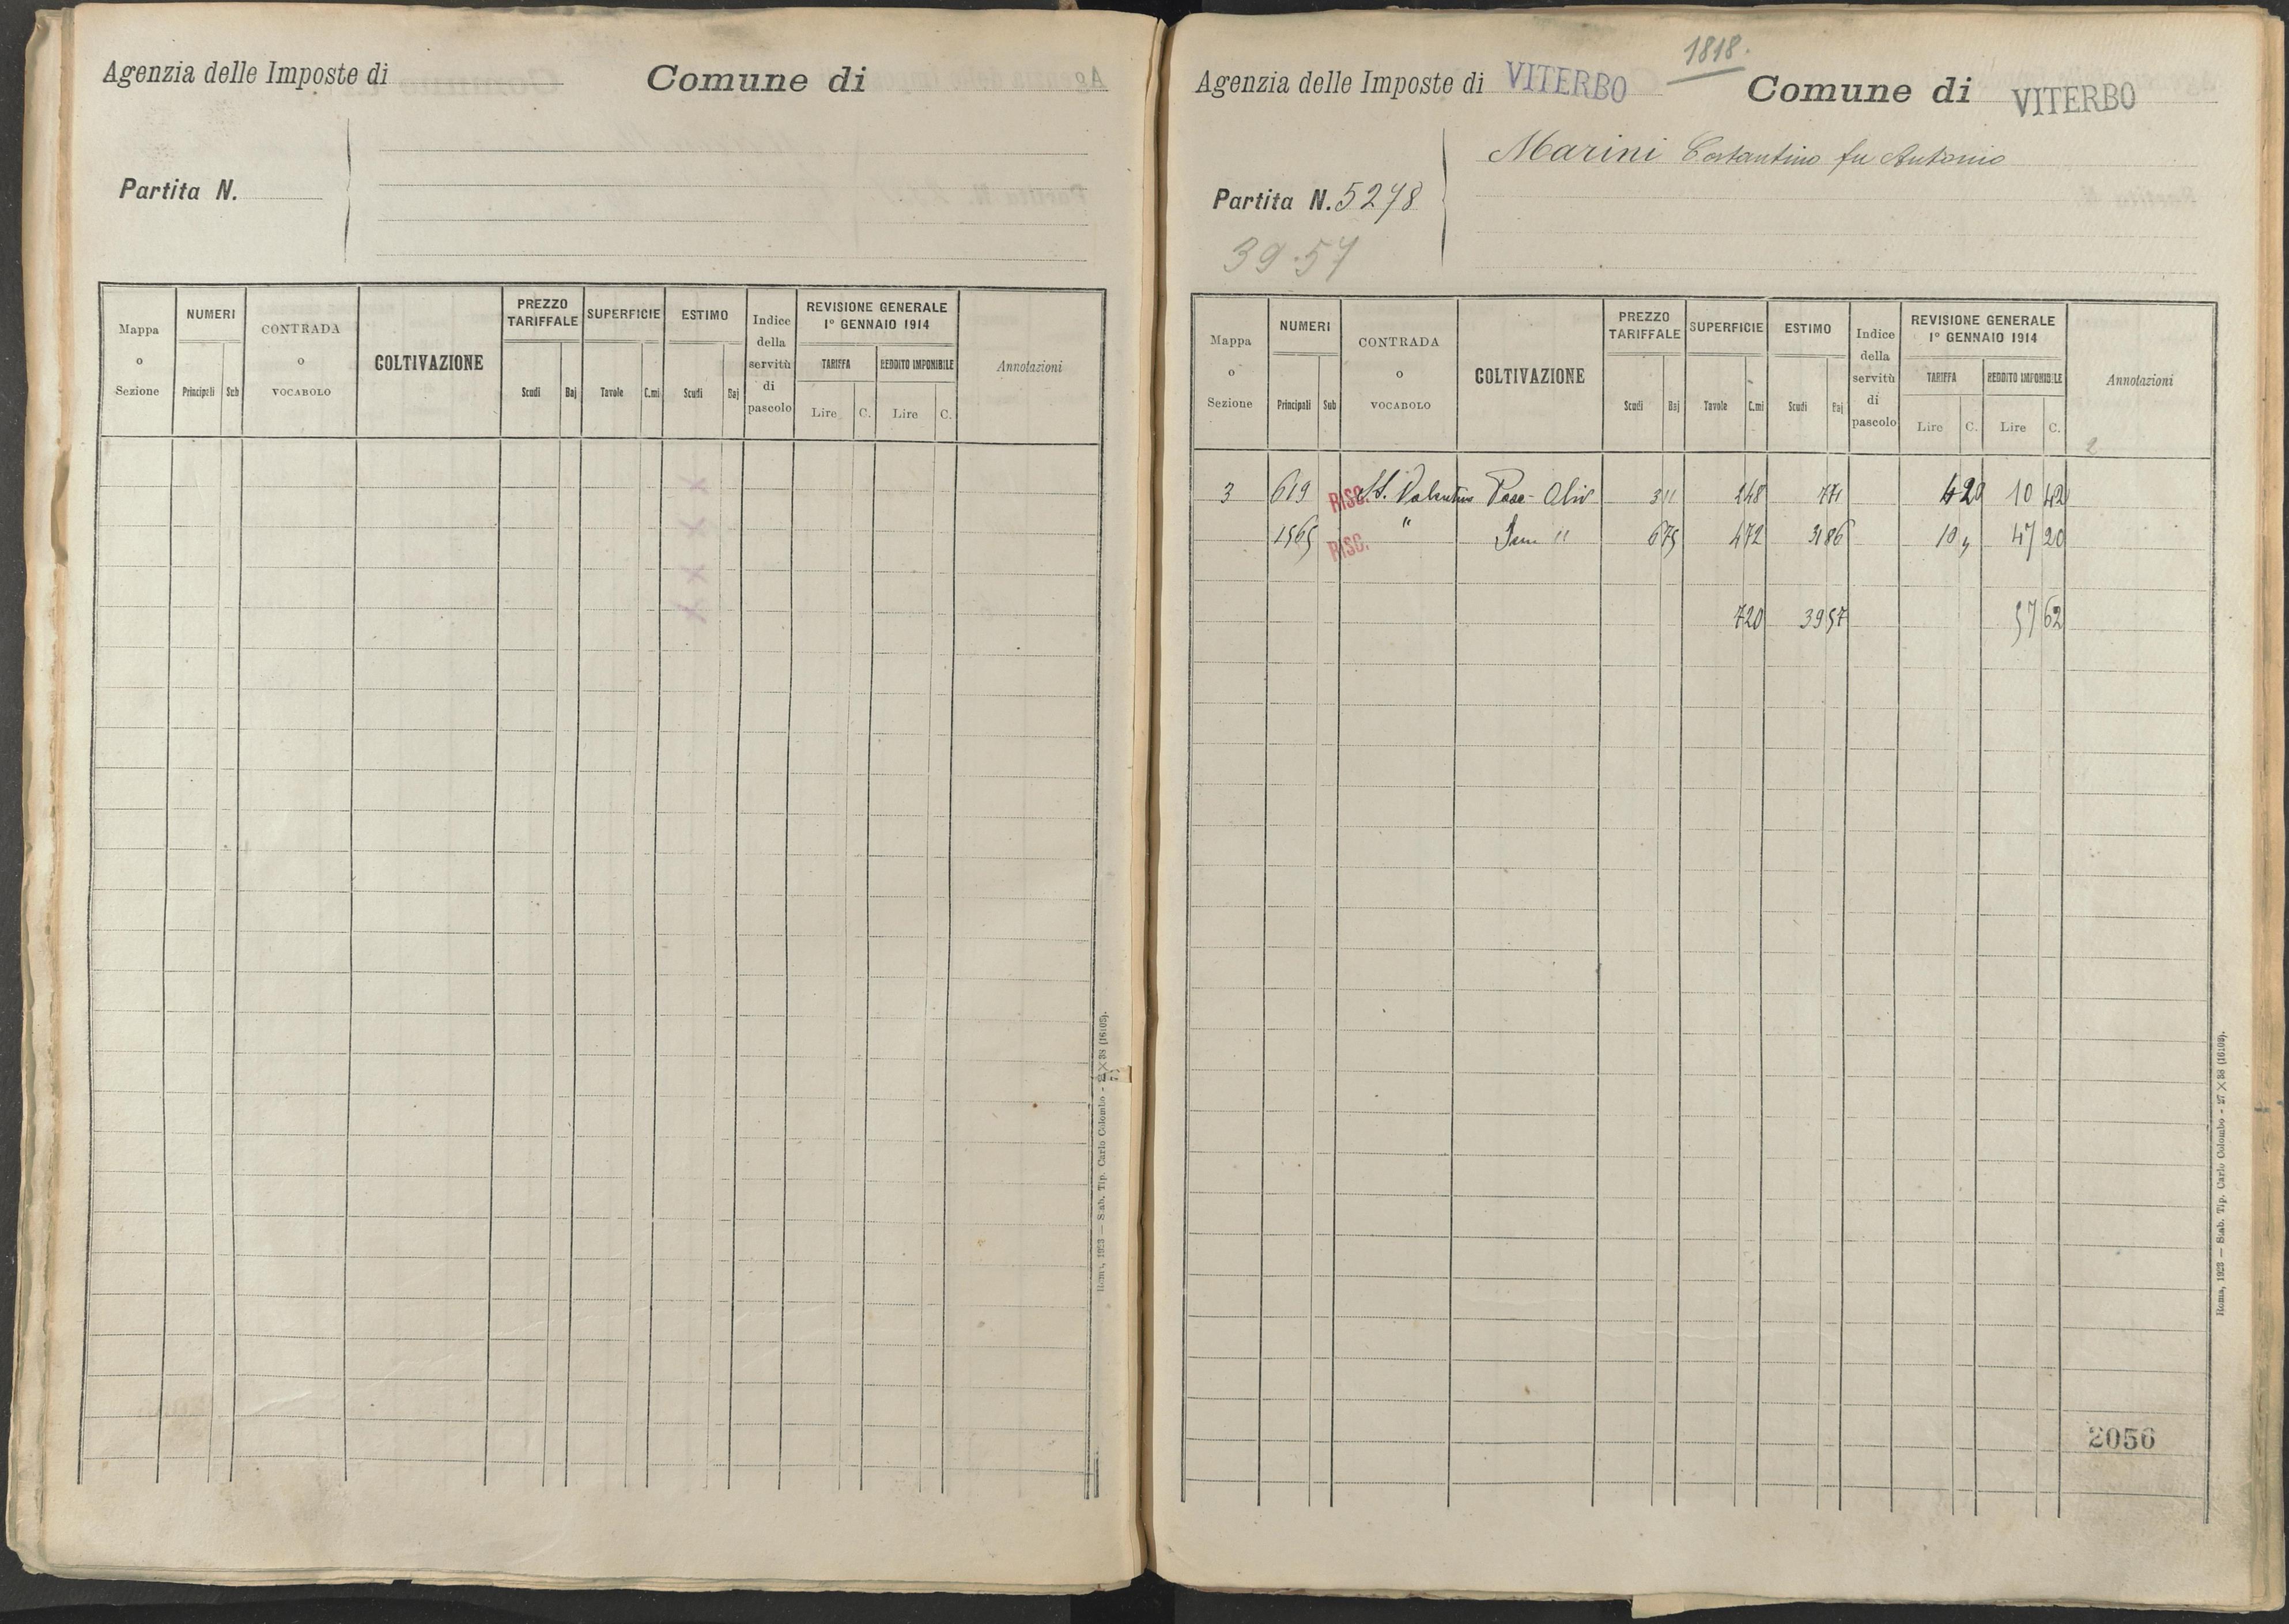 Agenzia delle Imposte di
Comune di
Partita N.
Mappa o Sezione
NUMERI
Principali
Sub
CONTRADA o VOCABOLO
COLTIVAZIONE
PREZZO TARIFFALE
Scudi
Baj
SUPERFICIE
Tavole
C.mi
ESTIMO
Scudi
Baj
Indice della servitù di pascolo
REVISIONE GENERALE
1° GENNAIO 1914
TARIFFA
REDDITO IMPONIBILE
Lire
C.
Lire
C.
Annotazioni
Roma, 1923 — Stab. Tip. Carlo Colombo - 27 × 38 (16108).
1818.
Agenzia delle Imposte di VITERBO
Comune di VITERBO
Marini Costantino fu Antonio
Partita N. 5278
39.57
Mappa o Sezione
NUMERI
Principali
Sub
CONTRADA o VOCABOLO
COLTIVAZIONE
PREZZO TARIFFALE
Scudi
Baj
SUPERFICIE
Tavole
C.mi
ESTIMO
Scudi
Baj
Indice della servitù di pascolo
REVISIONE GENERALE
1° GENNAIO 1914
TARIFFA
REDDITO IMPONIBILE
Lire
C.
Lire
C.
Annotazioni
2
3 619 RISC. S. Valentino Pasc- Oliv 311 248 771 420 10 42
1565 RISC. " Sem " 675 472 3186 10 " 47 20
720 3957 57 62
2056
Roma, 1923 — Stab. Tip. Carlo Colombo - 27 × 38 (16108).